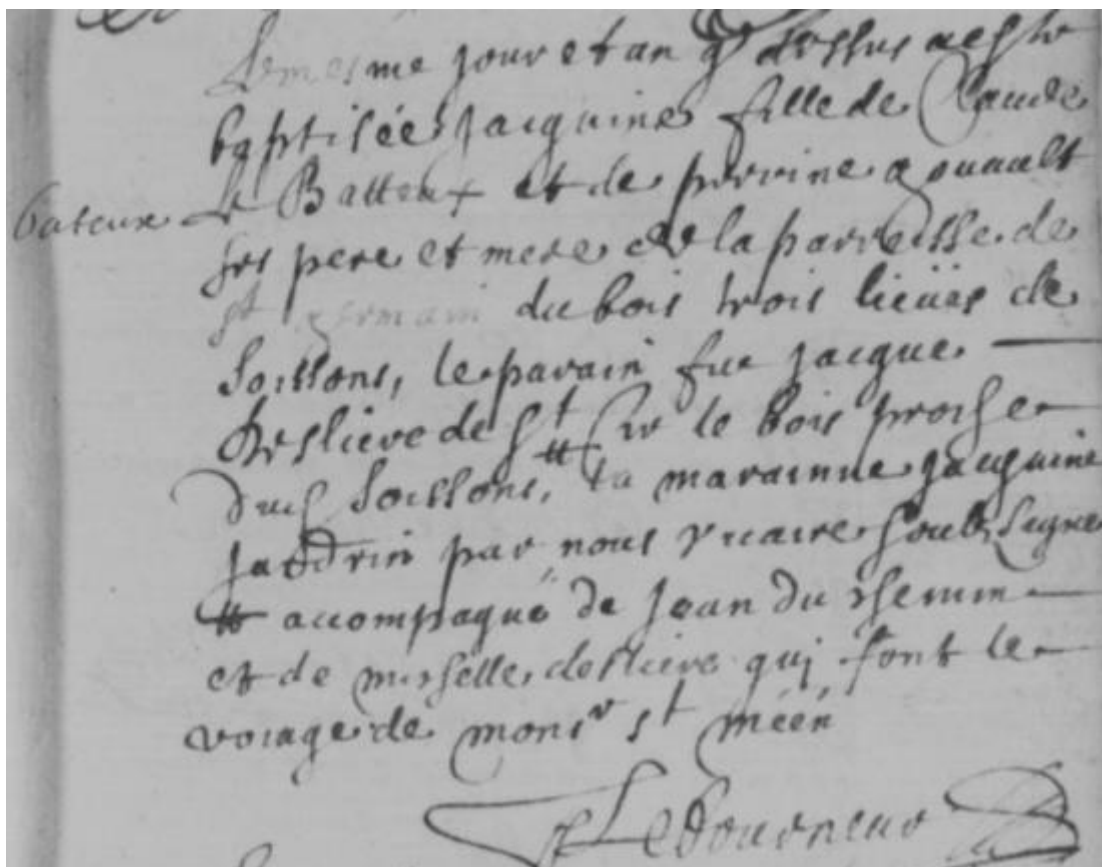 Le mesme jour et an q dessus a este
baptisée Jacquine fille de Claude
bateux
Le Batteux et de perrine gouault
ses pere et mere de la parroisse de
st germain du bois trois lieües de
Soissons, le parain fut jacque
desliere de St # sur le bois proche
dud Soissons, la marainne jacquine
jaddrin par nous vicaire soubsigne
# accompagné de jean du chemin
et de michelle desliere qui font le
voiage de monsr st méen
Le Tourneur